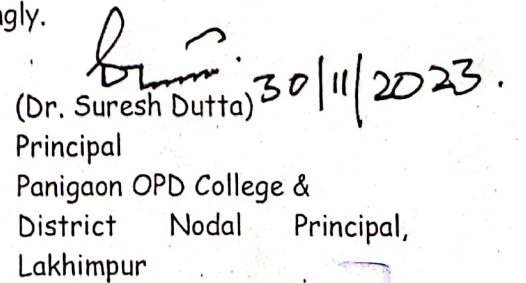 ngly.
30/11/2023.
(Dr. Suresh Dutta)
Principal
Panigaon OPD College &
District Nodal Principal,
Lakhimpur